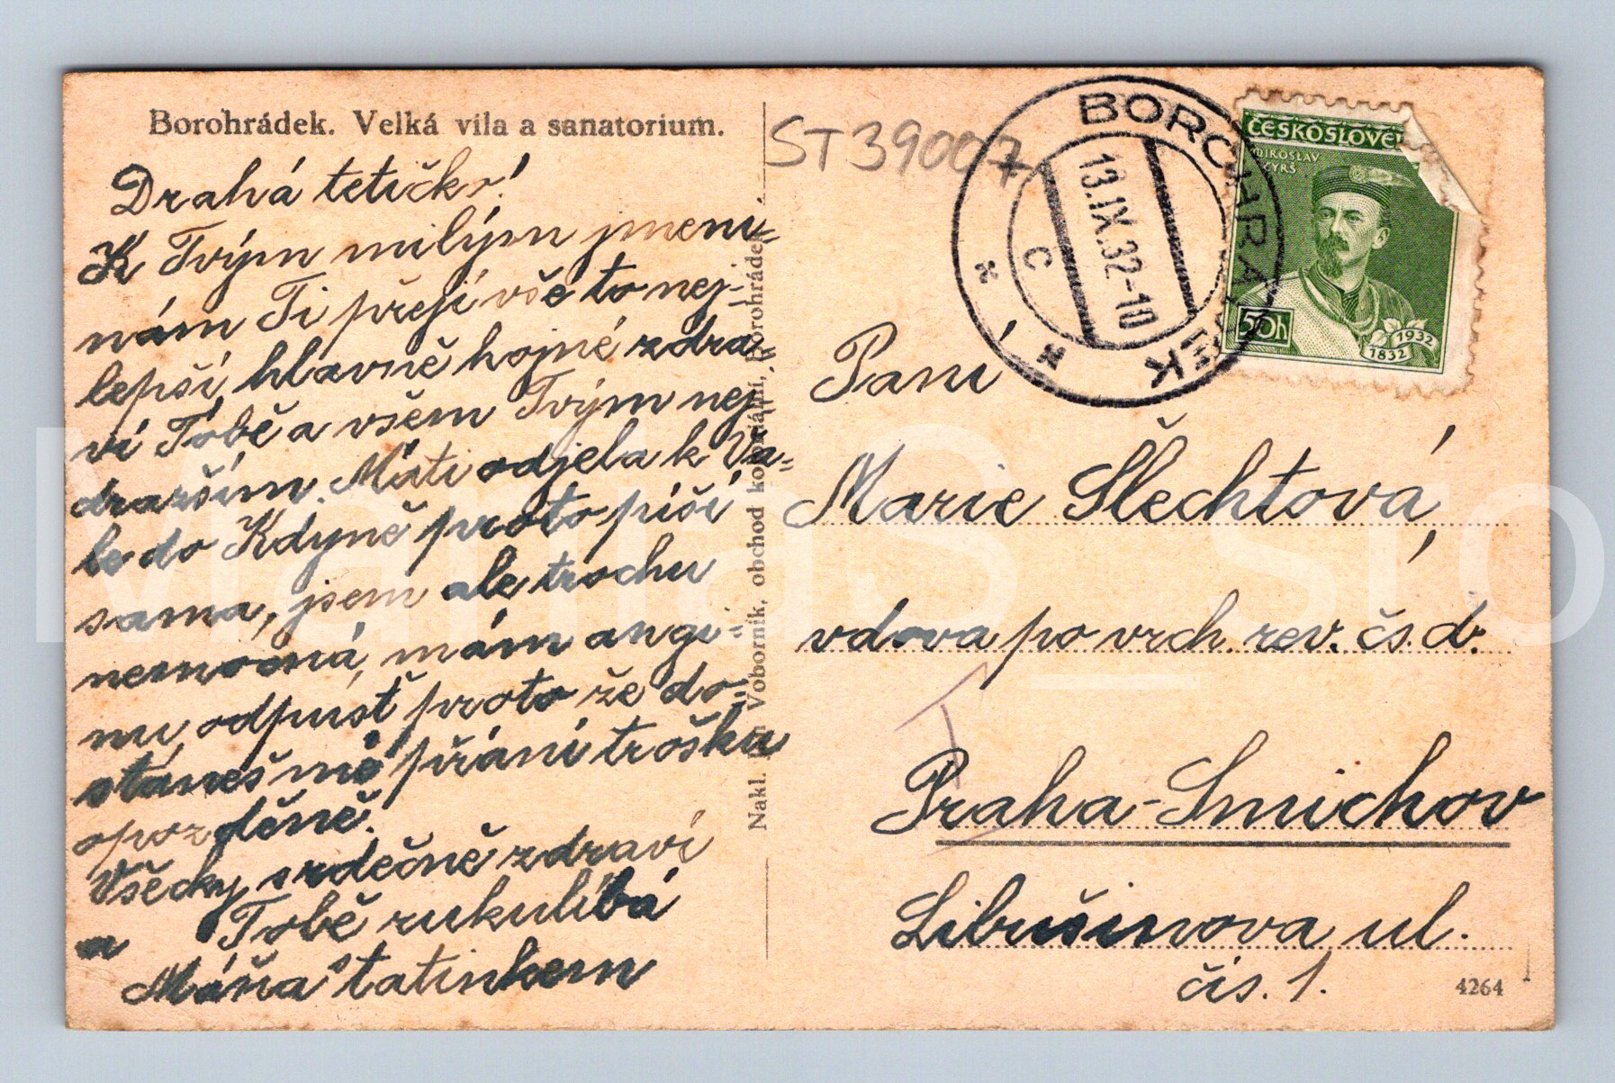 Borohrádek. Velká vila a sanatorium.
Drahá tetičko!
K Tvým milým jmeni-
nám Ti přeji vše to nej-
lepší, hlavně hojné zdra-
ví Tobě a všem Tvým nej-
dražším. Máti odjela k Va-
le do Kdyně proto píši
sama, jsem ale trochu
nemocná, mám angi-
nu, odpusť proto že do-
staneš mé přání troška
opozděně.
Všecky srdečně zdraví
a Tobě rukulíbá
Máňa s tatinkem
Nakl. Voborník, obchod koloniální, Borohrádek.
ST39007
BOROHRÁDEK
13.IX.32-10
C
ČESKOSLOVEN
MIROSLAV
TYRŠ
50h
1932
1832
Paní
Marie Šlechtová,
vdova po vrch. rev. čs. d.
Praha-Smichov
Libušinova ul.
čis. 1.
4264